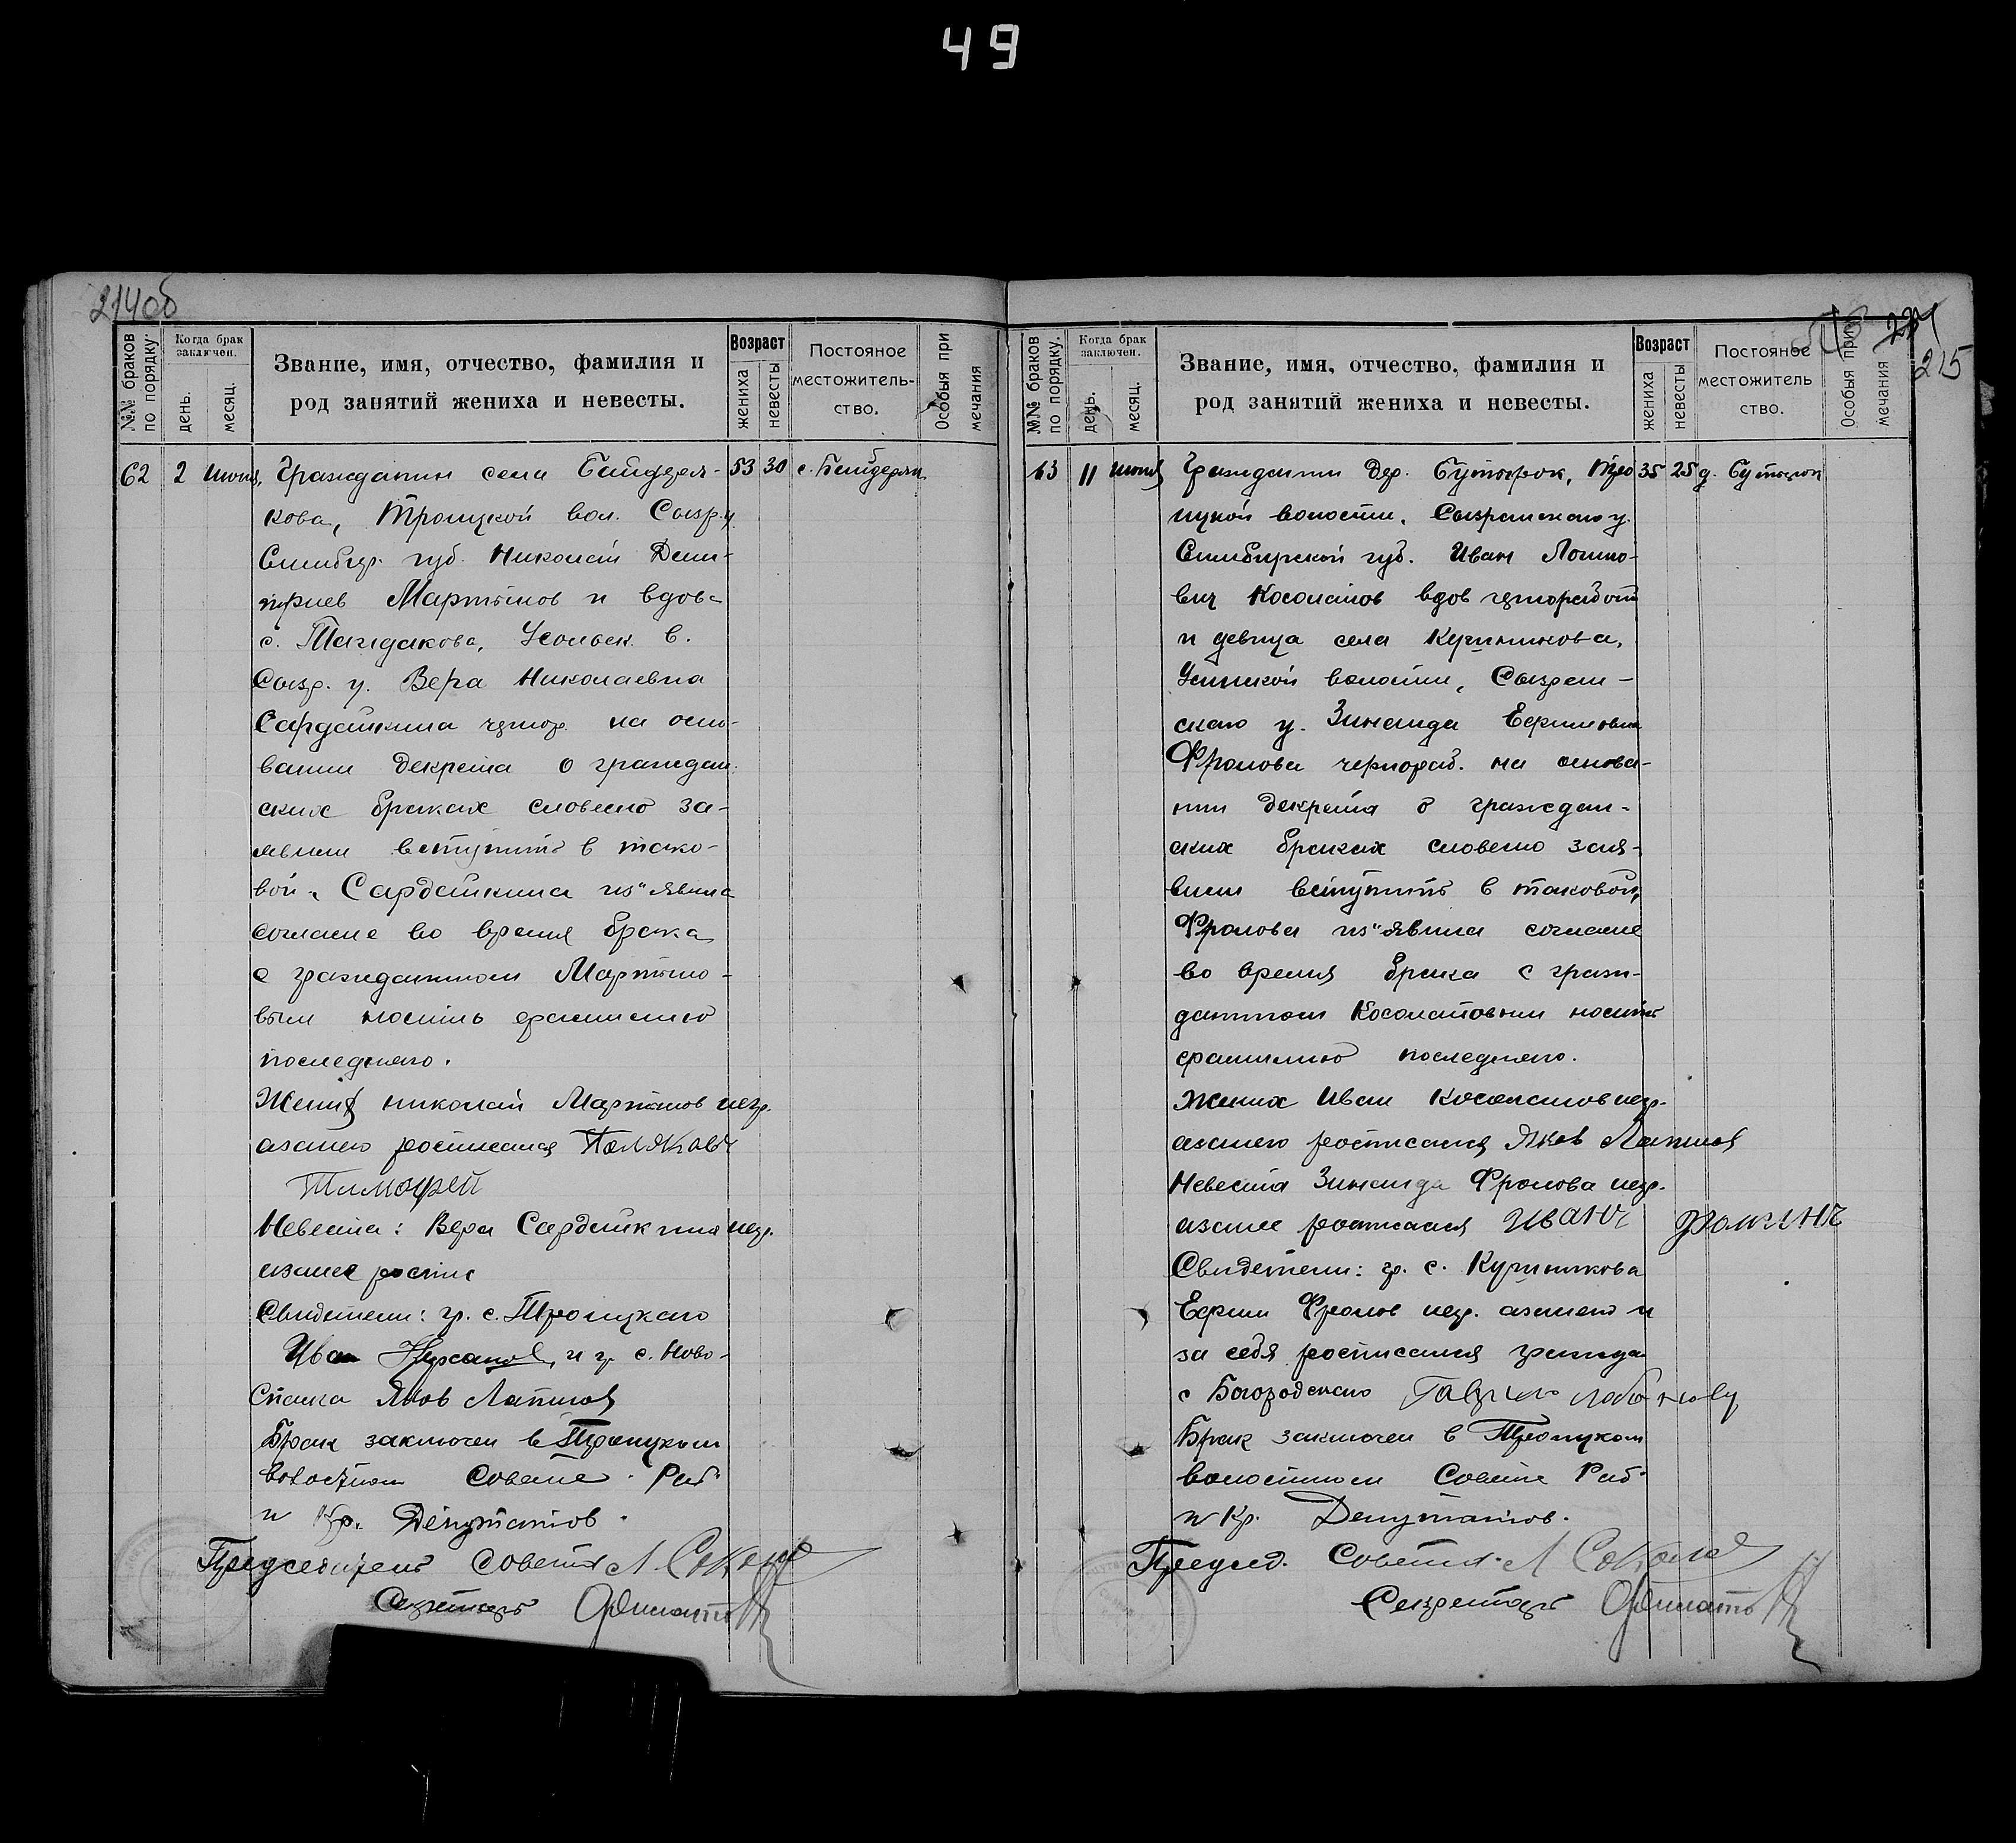 49
214об
№№ браков по порядку.
Когда брак заключен.
день.
месяц.
Звание, имя, отчество, фамилия и
род занятий жениха и невесты.
Возраст
жениха
невесты
Постояное
местожитель-
ство.
Особыя при
мечания
62 2 июня, Гражданин села Байдеря- 53 30 с. Байдеряк.
кова, Троицкой вол. Сызр. у
Симбир. губ. Николай Дми-
триев Мартынов и вдова
с. Тайдакова, Усольск. в.
Сызр. у. Вера Николаевна
Сардайкина чернор. на осно-
вании декрета о граждан.
ских браках словесно за-
явили вступить в тако-
вой. Сардайкина из"явила
согласие во время брака
с гражданином Мартыно-
вым носить фамилию
последняго.
Жених Николай Мартынов негр.
азанего росписался Поляковъ
Тимофей
Невеста: Вера Сардайкина негр.
Свидетели: гр. с. Троицкаго
Иван и гр. с. Ново-
Спаска Яков Лапшов
Брак заключен в Троицком
волостном Совете Раб
и Кр. Депутатов.
Председатель Совета Л. Сокол
Секретарь
215
№№ браков по порядку.
Когда брак заключен.
день.
месяц.
Звание, имя, отчество, фамилия и
род занятий жениха и невесты.
Возраст
жениха
невесты
Постояное
местожитель
ство.
Особыя при
мечания
63 11 июня Гражданин дер. Бутырок, Тро 35 25 д. Бутырок
ицкой волости, Сызранскаго у.
Симбирской губ. Иван
вич Косолапов вдов чернорабоч
и девица села
волости, Сызран-
скаго у. Зинаида Ефимовна
Фролова чернораб. на основа-
нии декрета о граждан-
ских браках словесно зая-
вили вступить в таковой,
Фролова из"явила согласие
во время брака с граж-
данином Косолаповым носить
фамилию последняго.
Жених Иван Косолапов негр.
азанего росписался Яков Лапшов
Невеста Зинаида Фролова негр.
азанее росписался Иванъ
Свидетели: гр. с.
Ефим Фролов негр. азанего и
за себя росписался гражда
с Богородскаго
Брак заключен в Троицком
волостном Совете Раб.
и Кр. Депутатов.
Председ. Совета. Л Сокол
Секретарь